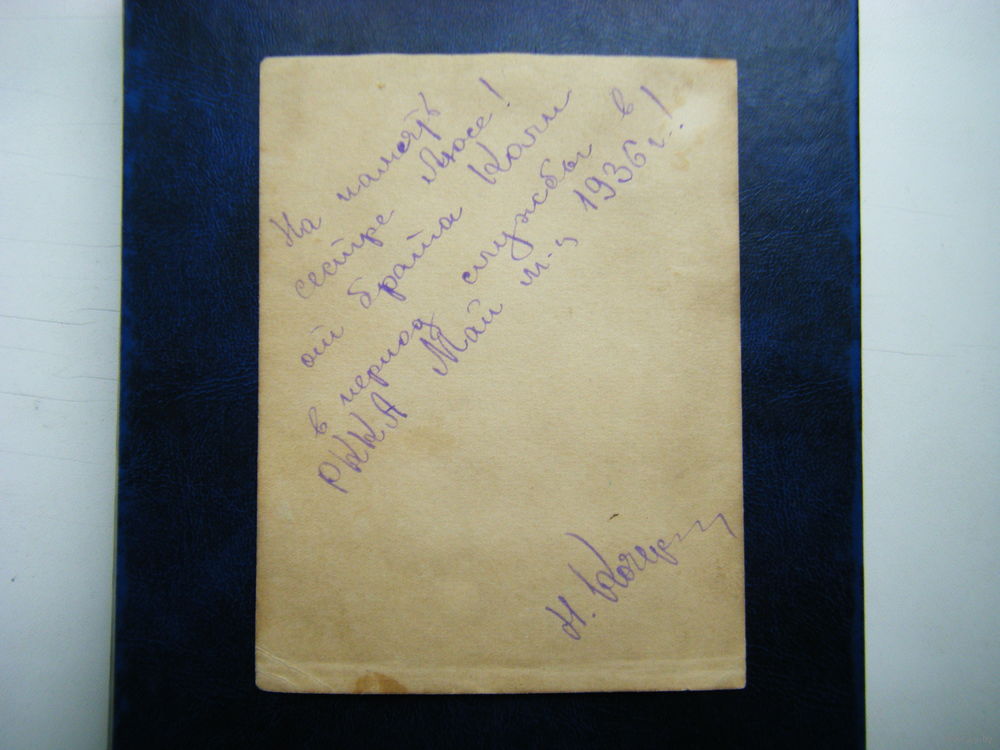 На память
сестре Люсе!
от брата Коли
в период службы в
РККА Май м-ц 1936 г.!
Н.